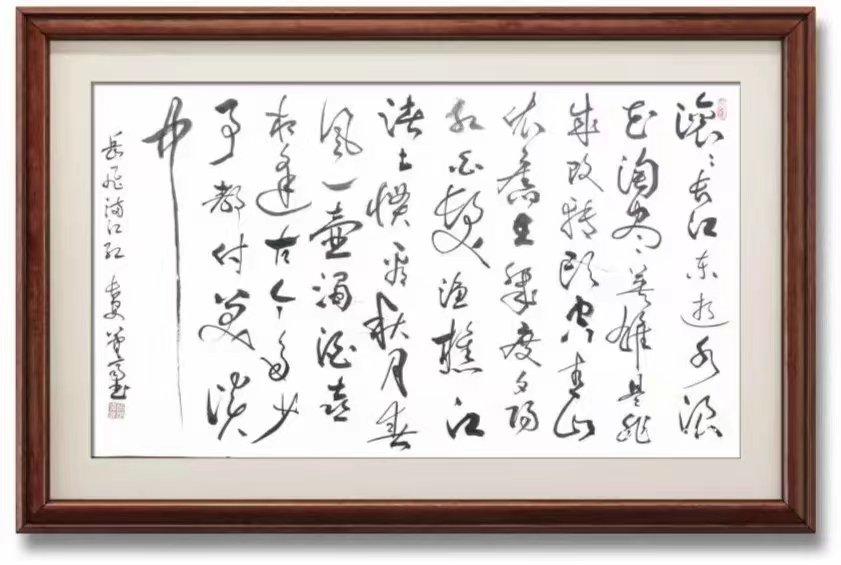 滚滚长江东逝水浪
花淘尽英雄是非
成败转头空青山
依旧在几度夕阳
红白发渔樵江
渚上惯看秋月春
风一壶浊酒喜
相逢古今多少
事都付笑谈
中
岳飞满江红